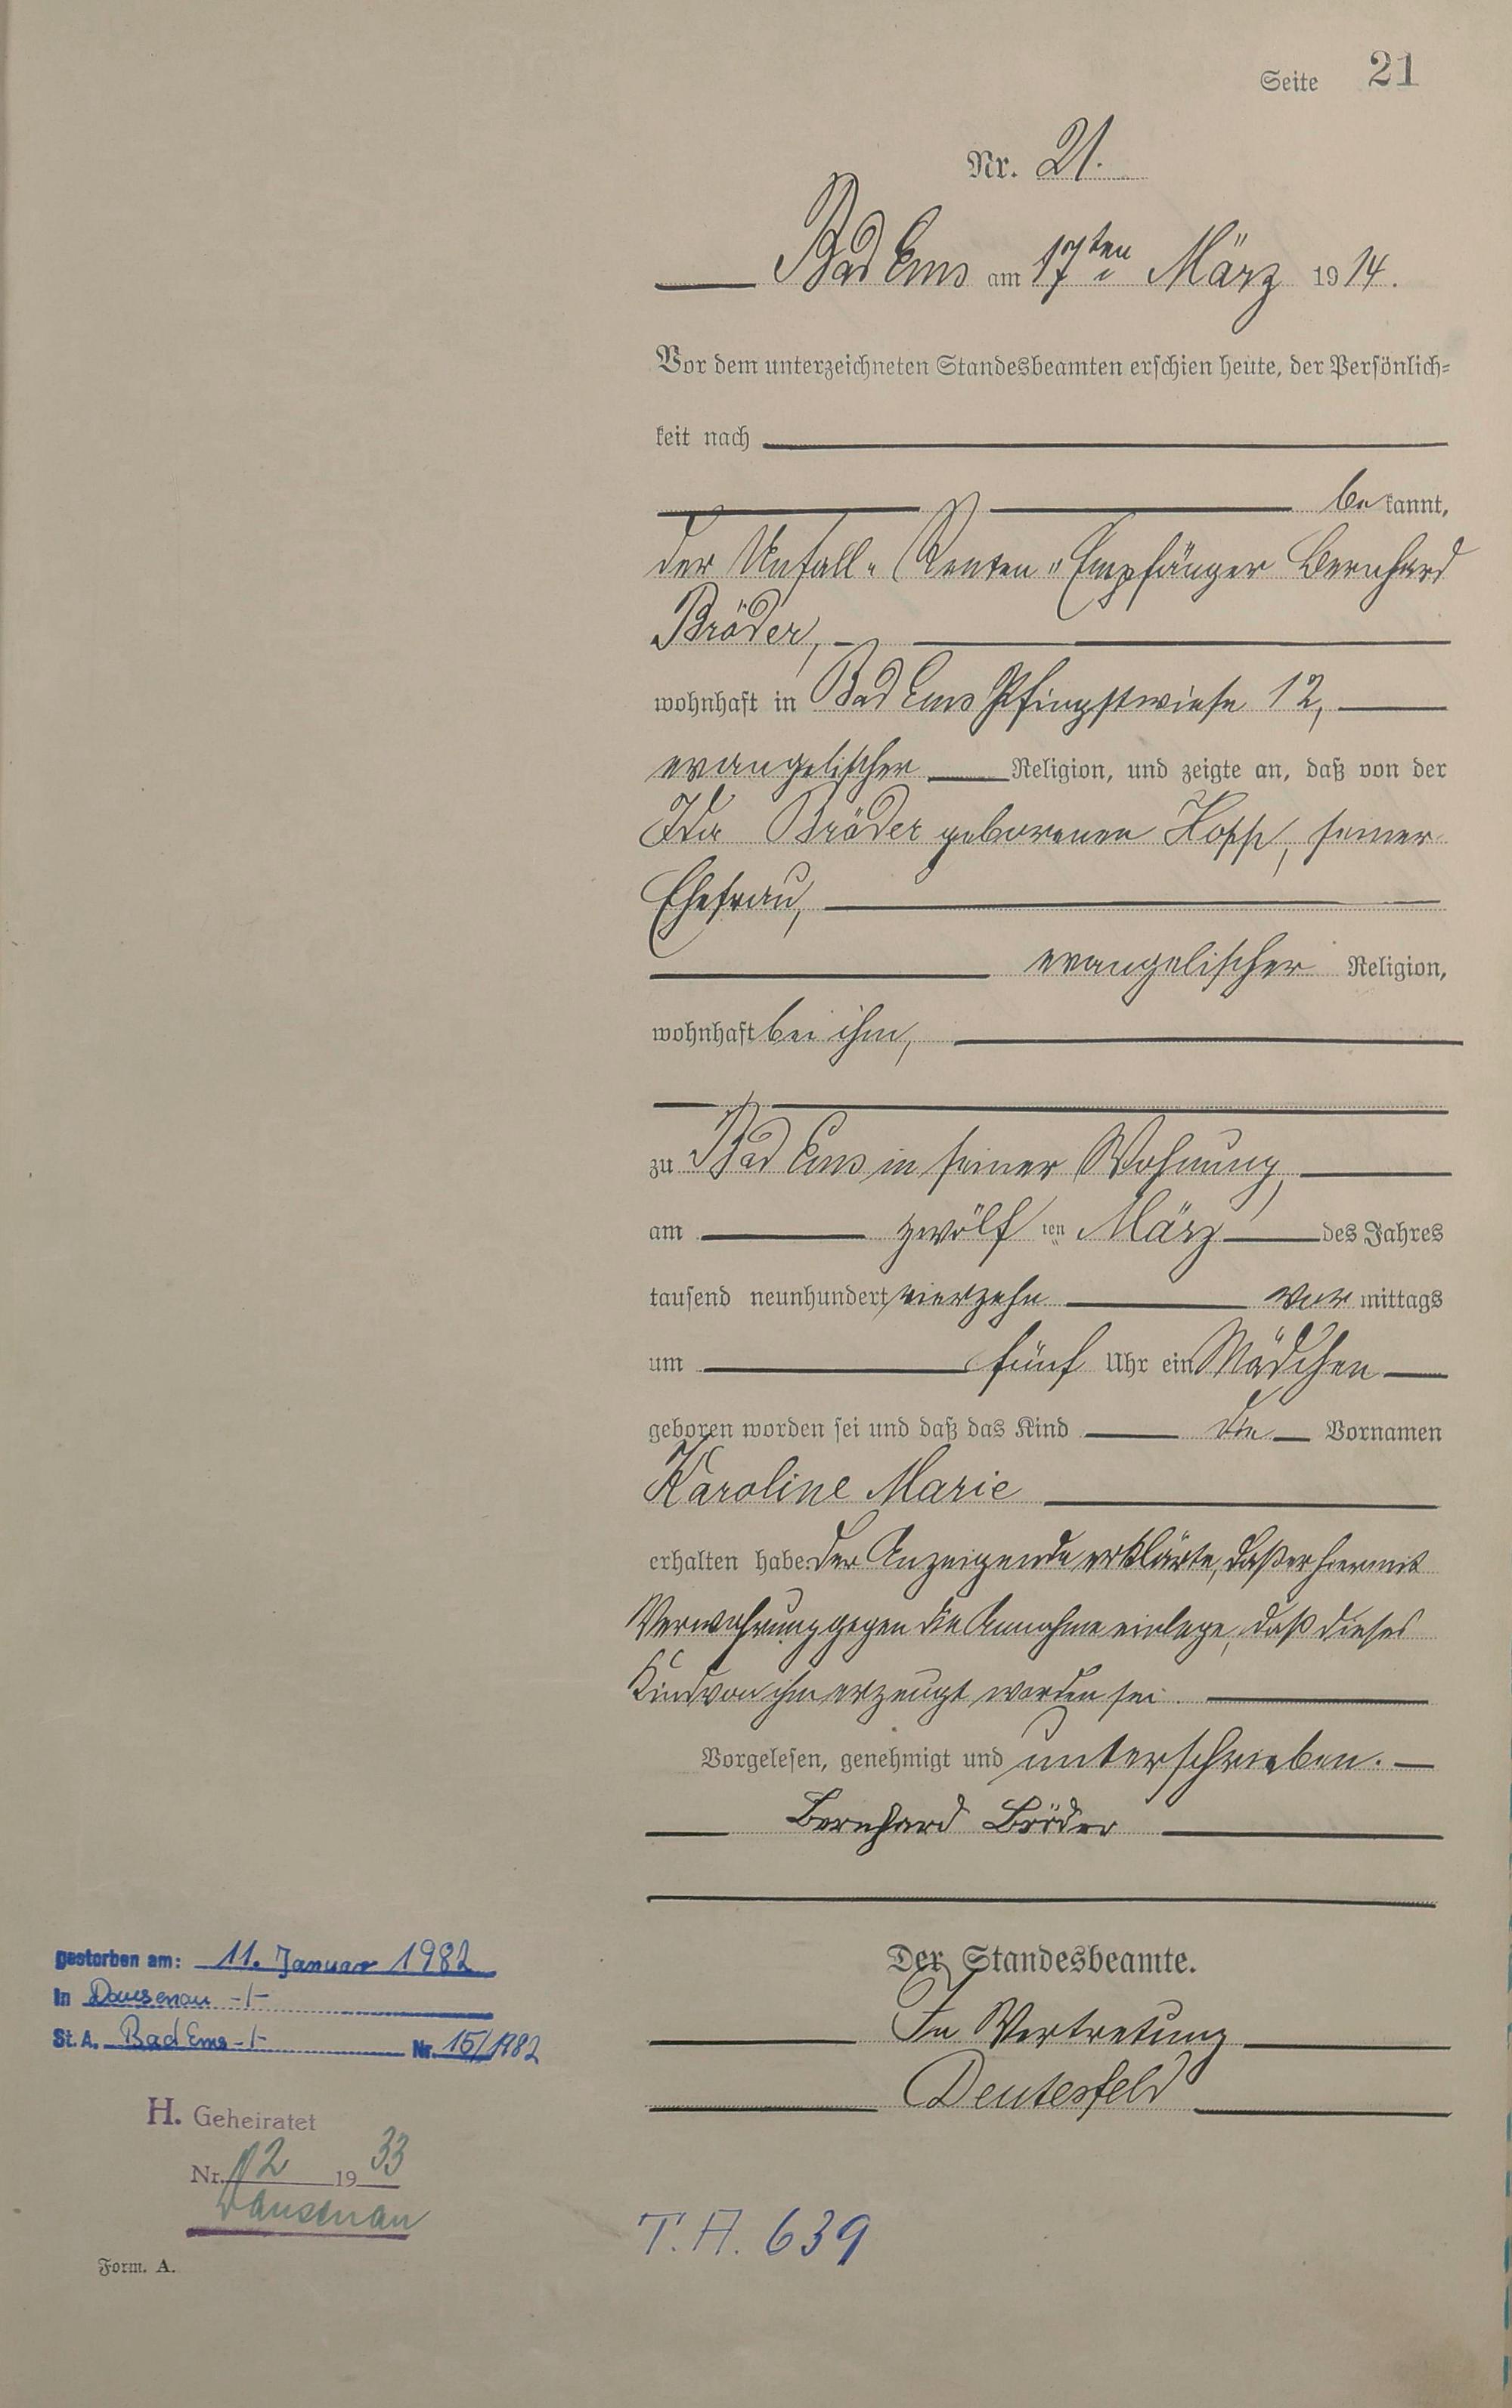 Seite 21
Nr. 21.
Bad Ems am 17ten März 1914.
Vor dem unterzeichneten Standesbeamten erschien heute, der Persönlich-
keit nach
bekannt,
der Unfall-Renten-Empfänger Bernhard
Bröder,
wohnhaft in Bad Ems Pfingstwiese 12,
evangelischer Religion, und zeigte an, daß von der
Ida Bröder geborenen Hopp, seiner
Ehefrau,
evangelischer Religion,
wohnhaft bei ihm,
zu Bad Ems in seiner Wohnung,
am zwölften März des Jahres
tausend neunhundert vierzehn vormittags
um fünf Uhr ein Mädchen
geboren worden sei und daß das Kind die Vornamen
Karoline Marie
erhalten habe. Der Anzeigende erklärte, daß er hiermit
Verwahrung gegen die Annahme einlege, daß dieses
Kind von ihm erzeugt worden sei.
Vorgelesen, genehmigt und unterschrieben.
Bernhard Bröder
Der Standesbeamte.
In Vertretung
Deutesfeld
gestorben am: 11. Januar 1982
in Dausenau -/-
St. A. Bad Ems -/- Nr. 15/1982
H. Geheiratet
Nr. 12 1933
Dausenau
Form. A.
T. A. 639